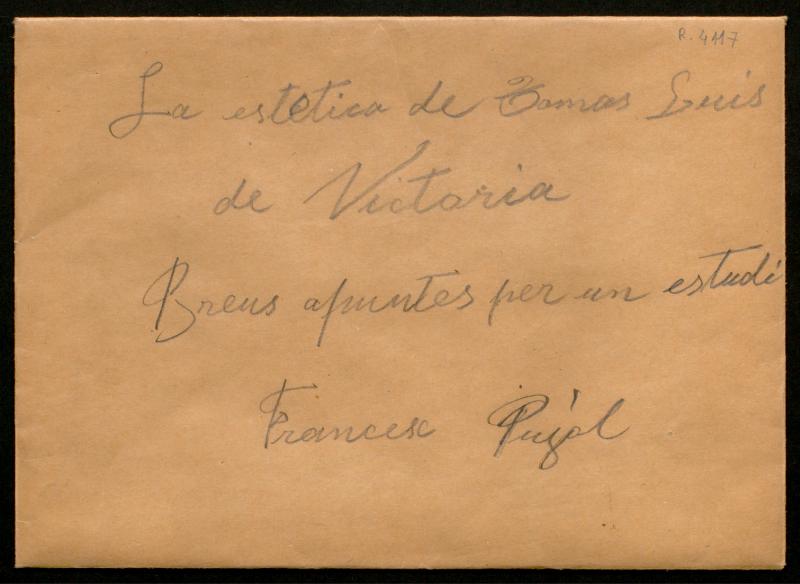 R. 4117
La estetica de Tomas Luis
de Victoria
Breus apuntes per un estudi
Francesc Pujol